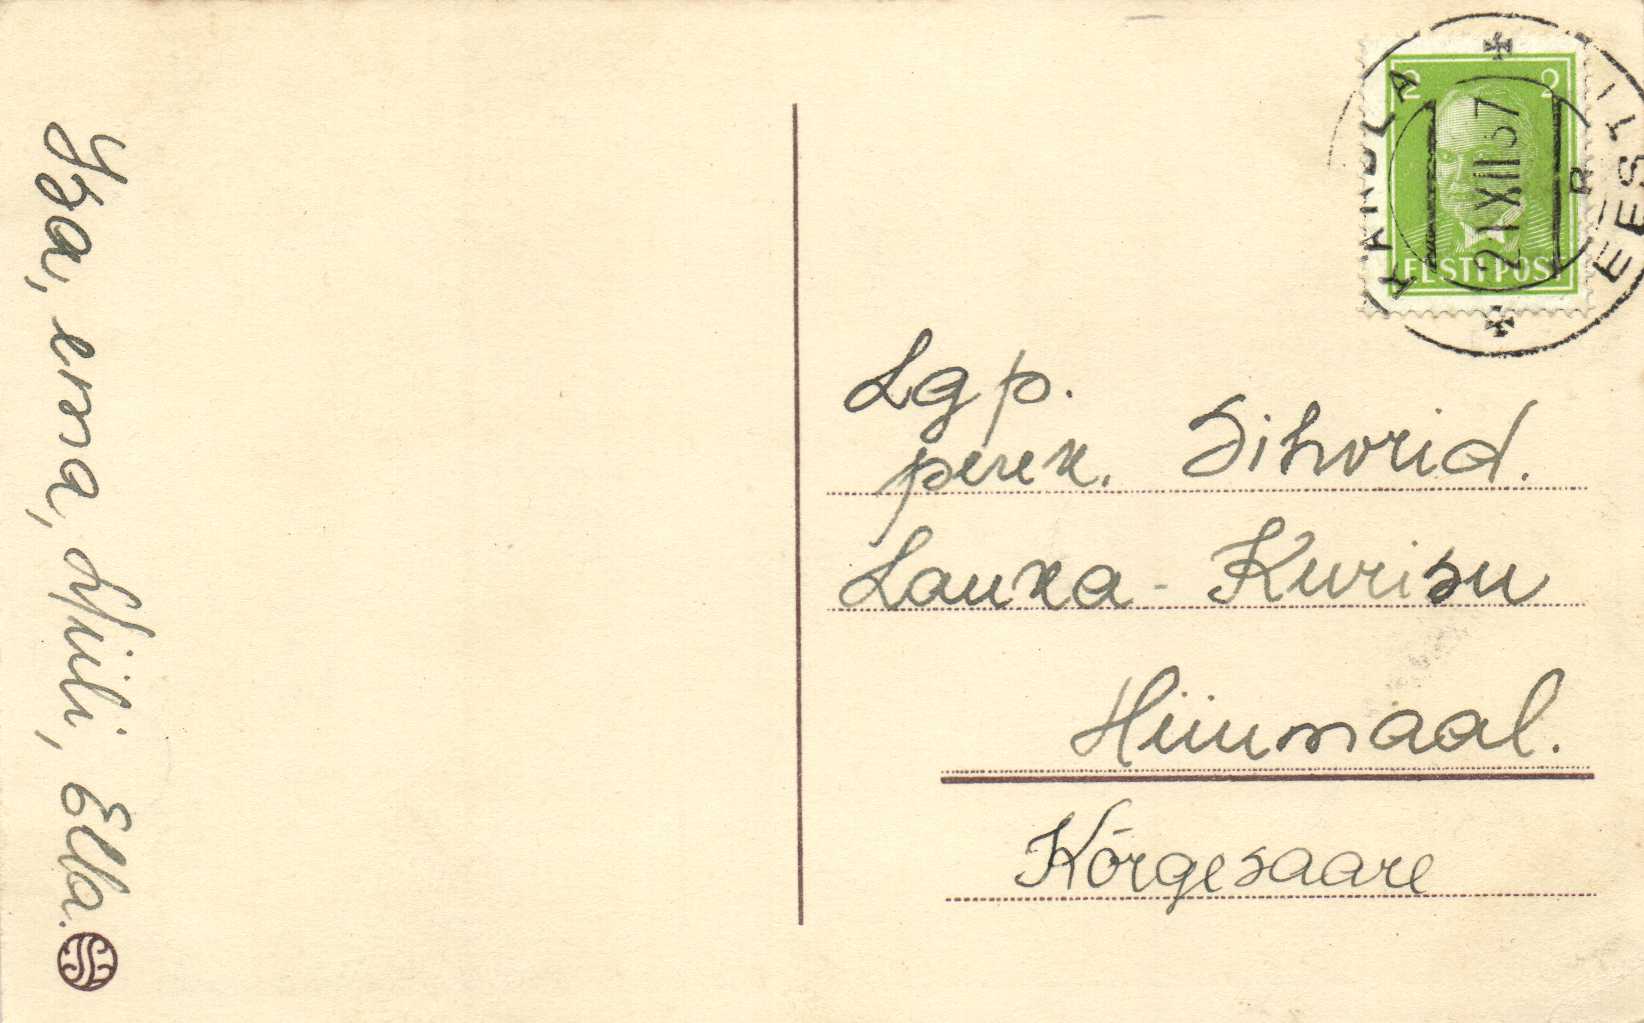 Isa, ema, Miili, Ella.
2 2
EESTI POST
KÄRDLA
EESTI
21 XII 37
B
Lg p.
perek. Sihvrid.
Lauka - Kurisu
Hiiumaal.
Kõrgesaare